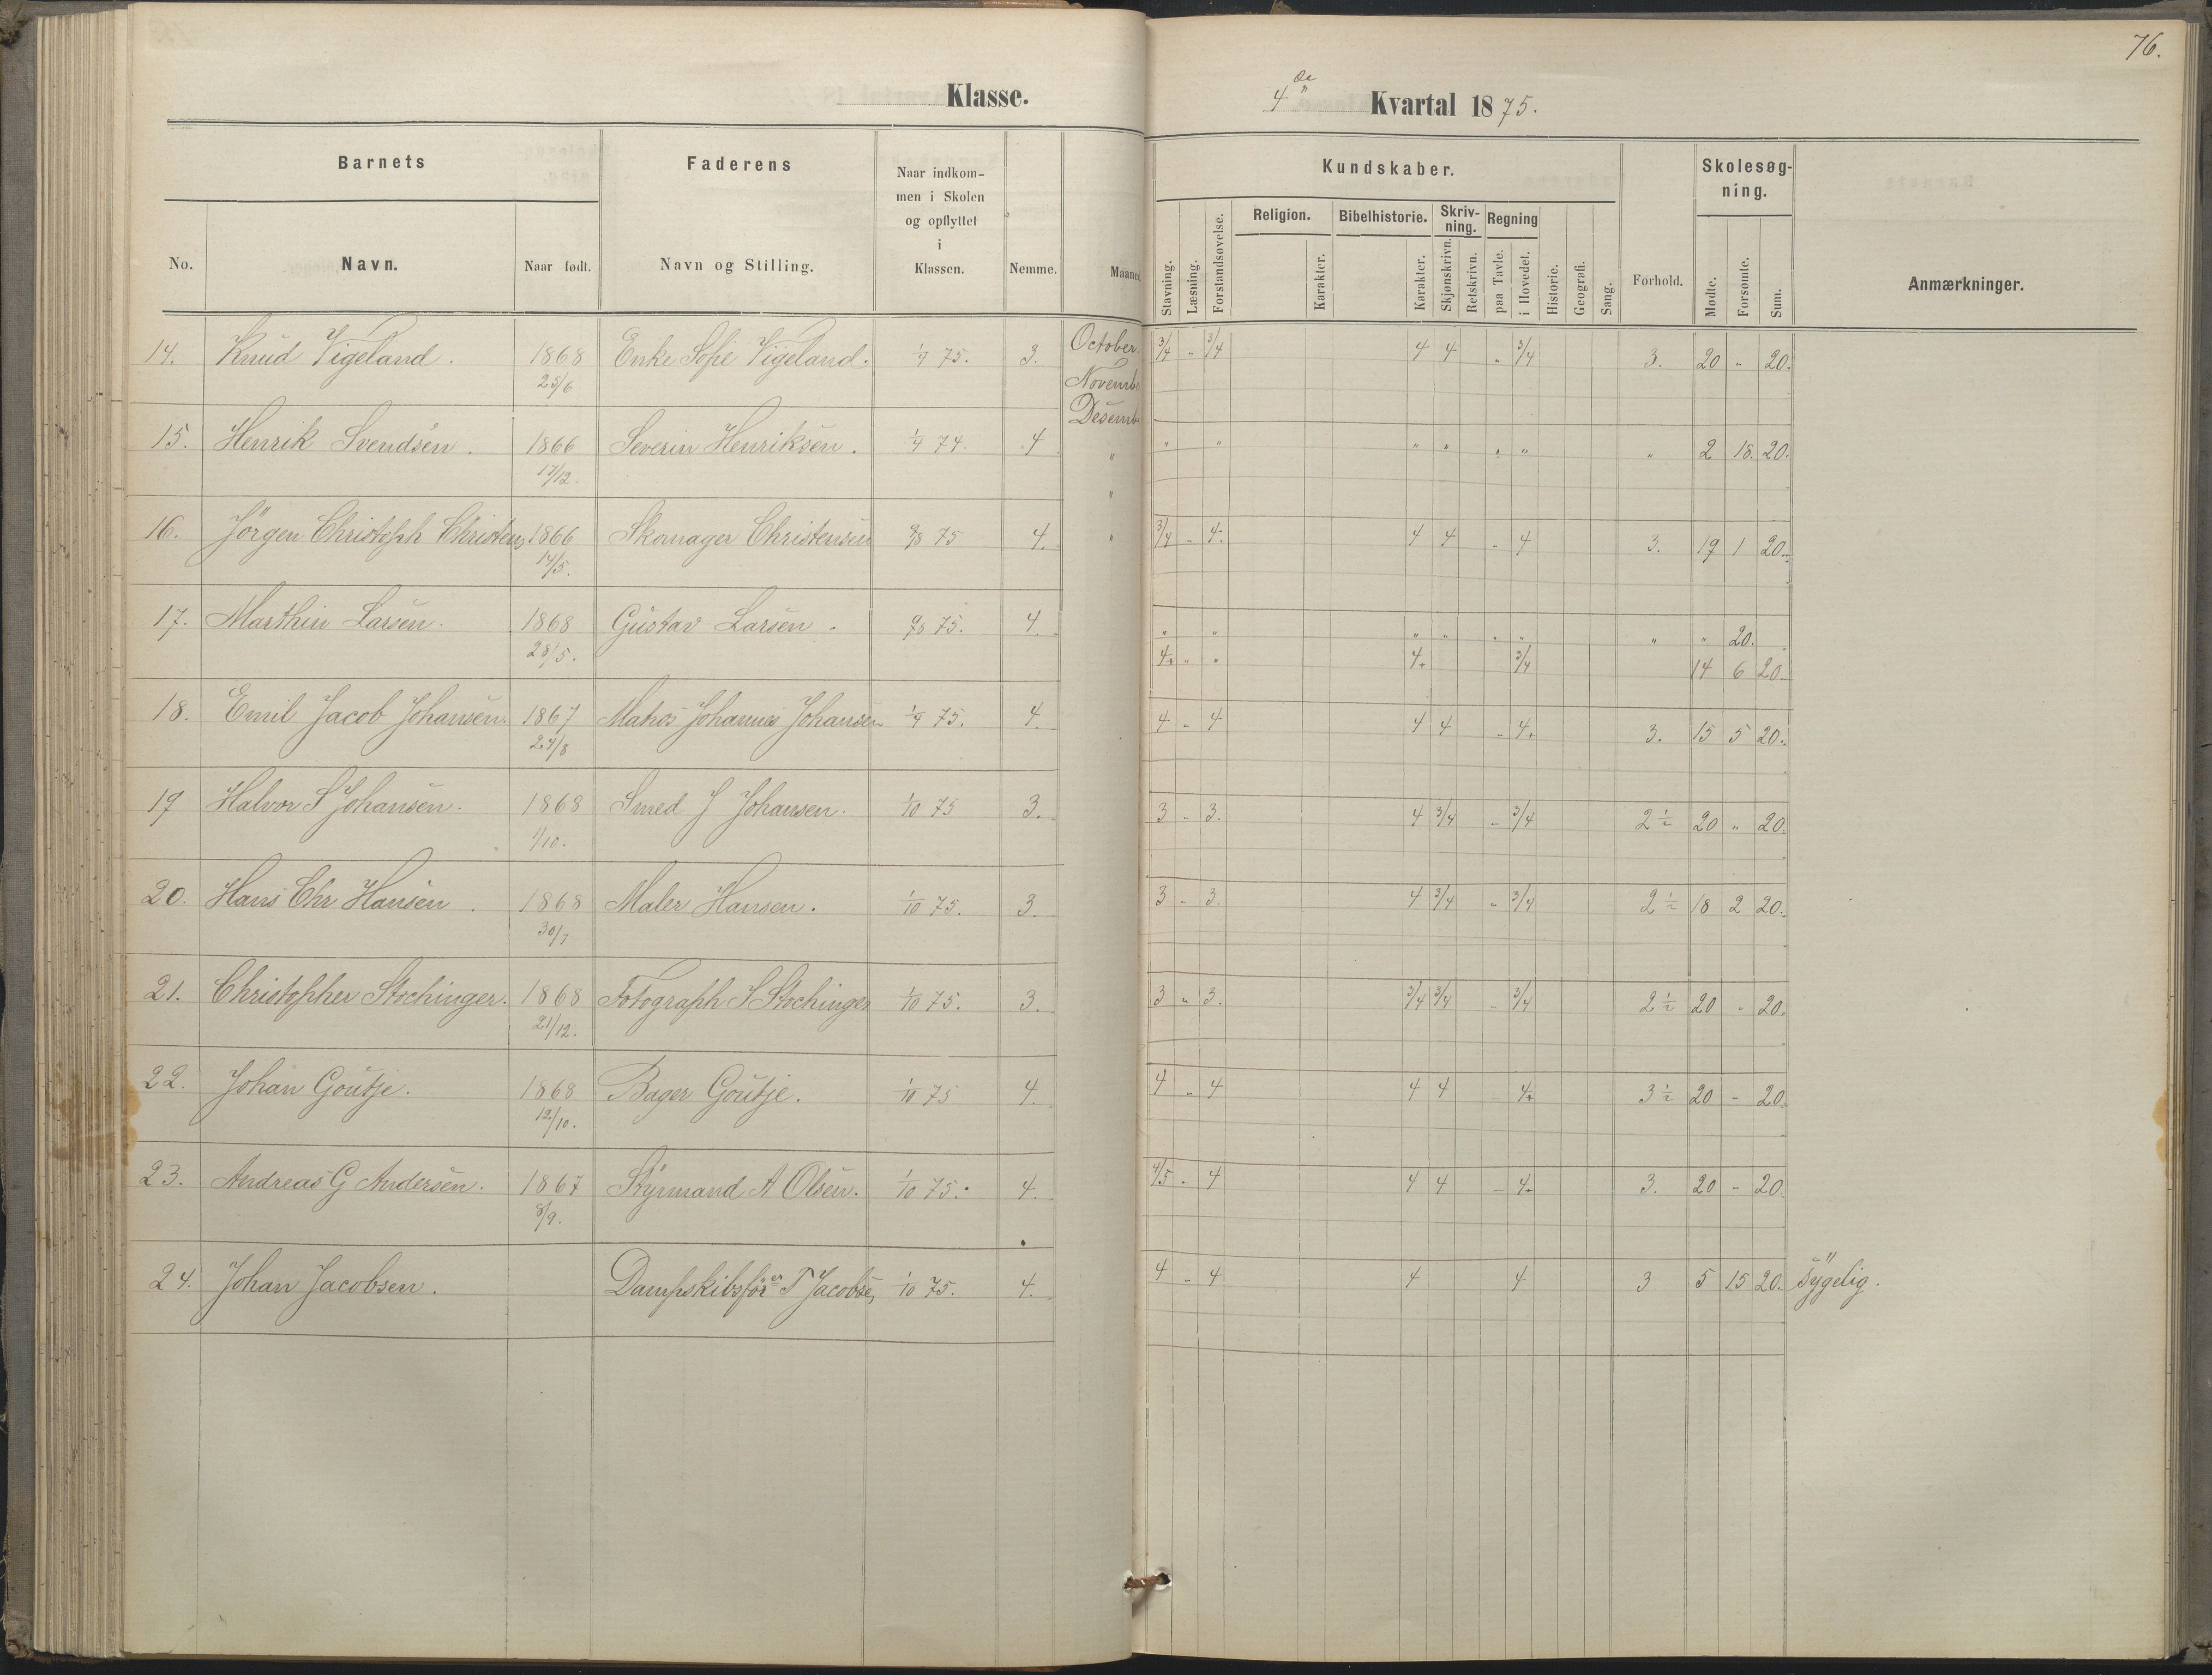 76.
Klasse.
4de Kvartal 1875.
Barnets
Faderens
Naar indkom-
men i Skolen
og opflyttet
i
Klassen.
No.
Navn.
Naar født.
Navn og Stilling.
Nemme.
Maaned
Kundskaber.
Skolesøg-
ning.
Religion.
Bibelhistorie.
Skriv-
ning.
Regning
Stavning.
Læsning.
Forstandsøvelse.
Karakter.
Karakter.
Skjønskrivn.
Retskrivn.
paa Tavle.
i Hovedet.
Historie.
Geografi.
Sang.
Forhold.
Mødte.
Forsømte.
Sum.
Anmærkninger.
14. Knud Vigeland. 1868 Enke Sofie Vigeland. 75. 3. October 3/4 " 3/4 4 4 " 3/4 3. 20 - 20.
25/6
Novemb
Desemb
15. Henrik Svendsen. 1866 Severin Henriksen. 74. 4 " " " " " " " " 2 18. 20.
17/12.
"
16. Jörgen Christoph Christens 1866 Skomager Christensen 75 4. " 3/4 - 4. 4 4 - 4 3. 19 1 20.
14/5.
17. Marthin Larsen. 1868 Gustav Larsen. 75. 4. " " " " " " " " 20.
28/5.
4+ " " 4+ 3/4 14 6 20
18. Emil Jacob Johansen. 1867 Matros Johannes Johansen 75. 4. 4 - 4 4 4 - 4+ 3. 15 5 20.
24/8
19 Halvor S Johansen. 1868 Smed J Johansen. 1/10 75 3. 3 - 3. 4 3/4 - 3/4 2 1/2 20 " 20.
1/10.
20. Hans Chr Hansen. 1868 Maler Hansen. 1/10 75. 3. 3 - 3. 4 3/4 " 3/4 2 1/2 18 2 20.
30/7
21. Christopher Stochinger. 1868 Fotograph S Stochinger 1/10 75. 3. 3 " 3. 3/4 3/4 - 3/4 2 1/2 20 - 20.
21/12.
22. Johan Goutje. 1868 Bager Goutje. 1/10 75 4. 4 " 4 4 4 - 4+ 3 1/2 20 - 20.
12/10.
23. Andreas G Andersen. 1867 Styrmand A Olsen. 1/10 75. 4. 4/5 - 4 4 4 - 4+ 3. 20 - 20.
8/9.
24. Johan Jacobsen. Dampskibsförer T Jacobse 1/10 75. 4. 4 - 4 4 4 3 5 15 20. sygelig.